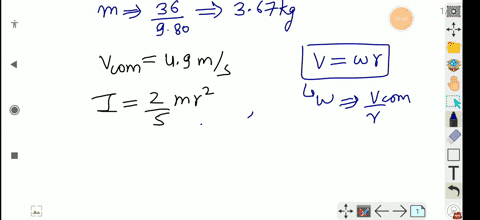 m ⇒ 36/9.80 ⇒ 3.67kg
Vcom = 4.9 m/s
V = ωr
I = 2/5 mr² ,
↳ω ⇒ Vcom/r
1